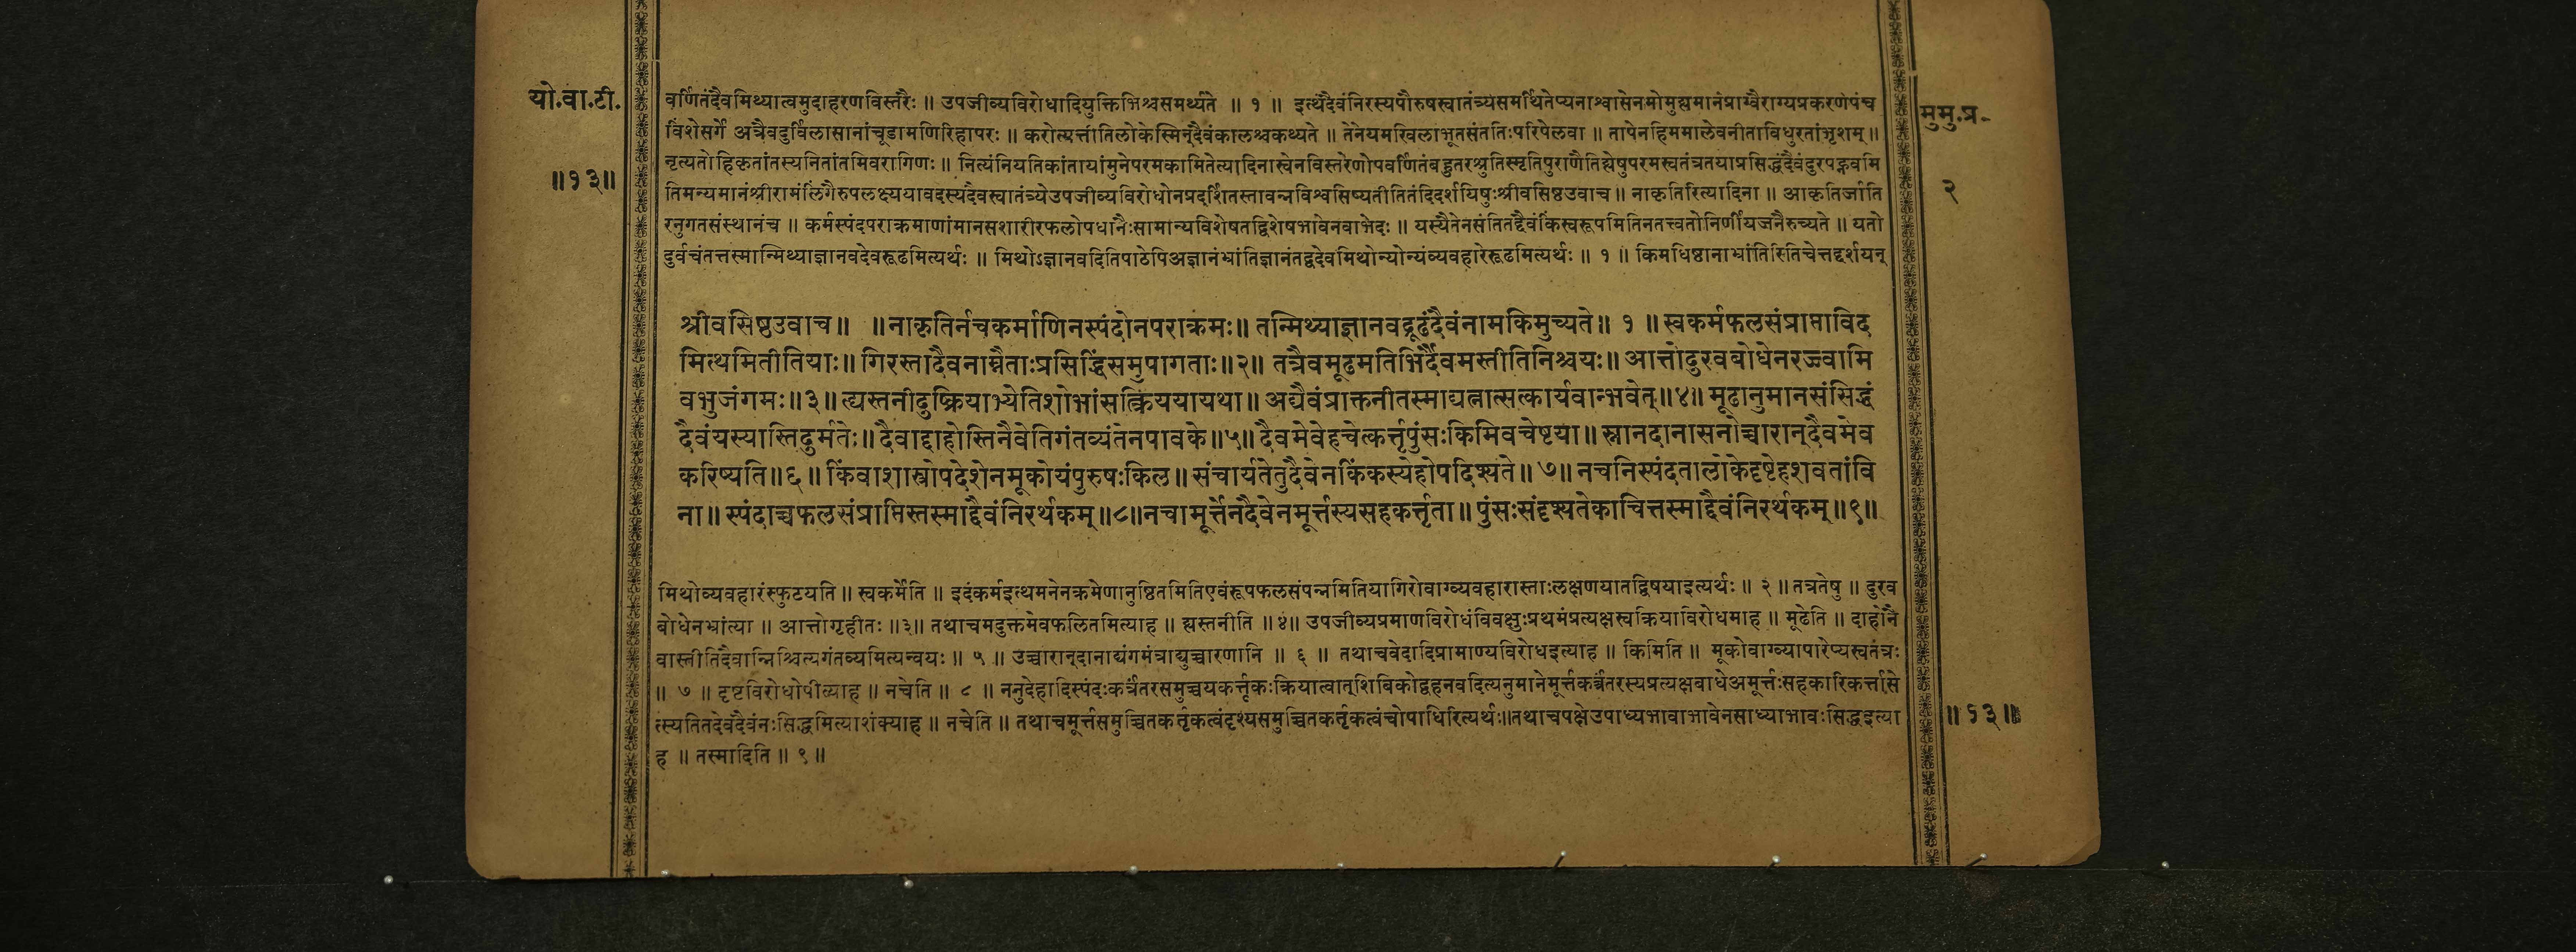 यो.वा.टी.
॥१३॥
वर्णितंदैवमिथ्यात्वमुदाहरणविस्तरैः ॥ उपजीव्यविरोधादियुक्तिभिश्चसमर्थ्यते ॥ १ ॥ इत्थंदैवंनिरस्यपौरुषस्वातंत्र्यसमर्थितेप्यनाश्वासेनमोमुह्यमानंप्राग्वैराग्यप्रकरणेपंच
विंशेसर्गे अत्रैवदुर्विलासानांचूडामणिरिहापरः ॥ करोत्यत्तीतिलोकेस्मिन्दैवंकालश्चकथ्यते ॥ तेनेयमखिलाभूतसंततिःपरिपेलवा ॥ तापेनहिममालेवनीताविधुरतांभृशम् ॥
नृत्यतोहिकृतांतस्यनितांतमिवरागिणः ॥ नित्यंनियतिकांतायांमुनेपरमकामितेत्यादिनास्वेनविस्तरेणोपवर्णितंबहुतरश्रुतिस्मृतिपुराणैतिह्येषुपरमस्वतंत्रतयाप्रसिद्धंदैवंदुरपह्नवमि
तिमन्यमानंश्रीरामंलिंगैरुपलक्ष्ययावदस्यदैवस्वातंत्र्येउपजीव्यविरोधोनप्रदर्शितस्तावन्नविश्वसिष्यतीतितंदिदर्शयिषुःश्रीवसिष्ठउवाच ॥ नाकृतिरित्यादिना ॥ आकृतिर्जाति
रनुगतसंस्थानंच ॥ कर्मस्पंदपराक्रमाणांमानसशारीरफलोपधानैःसामान्यविशेषतद्विशेषभावेनवाभेदः ॥ यस्यैतेनसंतितद्दैवंकिंस्वरूपमितिनतत्त्वतोनिर्णीयजनैरुच्यते ॥ यतो
दुर्वचंतत्तस्मान्मिथ्याज्ञानवदेवरूढमित्यर्थः ॥ मिथोऽज्ञानवदितिपाठेपिअज्ञानंभ्रांतिज्ञानंतद्वदेवमिथोन्योन्यंव्यवहारेरूढमित्यर्थः ॥ १ ॥ किमधिष्ठानाभ्रांतिरितिचेत्तद्दर्शयन्
श्रीवसिष्ठउवाच॥ ॥नाकृतिर्नचकर्माणिनस्पंदोनपराक्रमः॥ तन्मिथ्याज्ञानवद्रूढंदैवंनामकिमुच्यते॥ १ ॥स्वकर्मफलसंप्राप्ताविद
मित्थमितीतियाः॥ गिरस्तादैवनाम्नैताःप्रसिद्धिंसमुपागताः॥२॥ तत्रैवमूढमतिभिर्दैवमस्तीतिनिश्चयः॥ आत्तोदुरवबोधेनरज्ज्वामि
वभुजंगमः॥३॥ ह्यस्तनीदुष्क्रियाभ्येतिशोभांसत्क्रिययायथा॥ अद्यैवंप्राक्तनीतस्माद्यत्नात्सत्कार्यवान्भवेत्॥४॥ मूढानुमानसंसिद्धं
दैवंयस्यास्तिदुर्मतेः॥दैवाद्दाहोस्तिनैवेतिगंतव्यंतेनपावके॥५॥दैवमेवेहचेत्कर्तृपुंसःकिमिवचेष्टया॥ स्नानदानासनोच्चारान्दैवमेव
करिष्यति॥६॥ किंवाशास्त्रोपदेशेनमूकोयंपुरुषःकिल॥ संचार्यतेतुदैवेनकिंकस्येहोपदिश्यते॥ ७॥ नचनिस्पंदतालोकेदृष्टेहशवतांवि
ना॥ स्पंदाच्चफलसंप्राप्तिस्तस्माद्दैवंनिरर्थकम्॥८॥नचामूर्त्तेनदैवेनमूर्त्तस्यसहकर्त्तृता॥ पुंसःसंदृश्यतेकाचित्तस्माद्दैवंनिरर्थकम्॥९॥
मिथोव्यवहारंस्फुटयति ॥ स्वकर्मेति ॥ इदंकर्मइत्थमनेनक्रमेणानुष्ठितमितिएवंरूपफलसंपन्नमितियागिरोवाग्व्यवहारास्ताःलक्षणयातद्विषयाइत्यर्थः ॥ २ ॥ तत्रतेषु ॥ दुरव
बोधेनभ्रांत्या ॥ आत्तोगृहीतः ॥३॥ तथाचमदुक्तमेवफलितमित्याह ॥ ह्यस्तनीति ॥४॥ उपजीव्यप्रमाणविरोधंविवक्षुःप्रथमंप्रत्यक्षस्वक्रियाविरोधमाह ॥ मूढेति ॥ दाहोनै
वास्तीतिदैवान्निश्चित्यगंतव्यमित्यन्वयः ॥ ५ ॥ उच्चारान्दानाद्यंगमंत्राद्युच्चारणानि ॥ ६ ॥ तथाचवेदादिप्रामाण्यविरोधइत्याह ॥ किमिति ॥ मूकोवाग्व्यापारेप्यस्वतंत्रः
॥ ७ ॥ दृष्टविरोधोपीत्याह ॥ नचेति ॥ ८ ॥ ननुदेहादिस्पंदःकर्त्रंतरसमुच्चयकर्त्तृकःक्रियात्वात्शिबिकोद्वहनवदित्यनुमानेमूर्त्तकर्त्रंतरस्यप्रत्यक्षबाधेअमूर्त्तःसहकारिकर्त्तासे
त्स्यतितदेवदैवंनःसिद्धमित्याशंक्याह ॥ नचेति ॥ तथाचमूर्त्तसमुच्चितकर्तृकत्वंदृश्यसमुच्चितकर्तृकत्वंचोपाधिरित्यर्थः॥तथाचपक्षेउपाध्यभावाभावेनसाध्याभावःसिद्धइत्या
ह ॥ तस्मादिति ॥ ९ ॥
मुमु.प्र.
२
॥१३॥